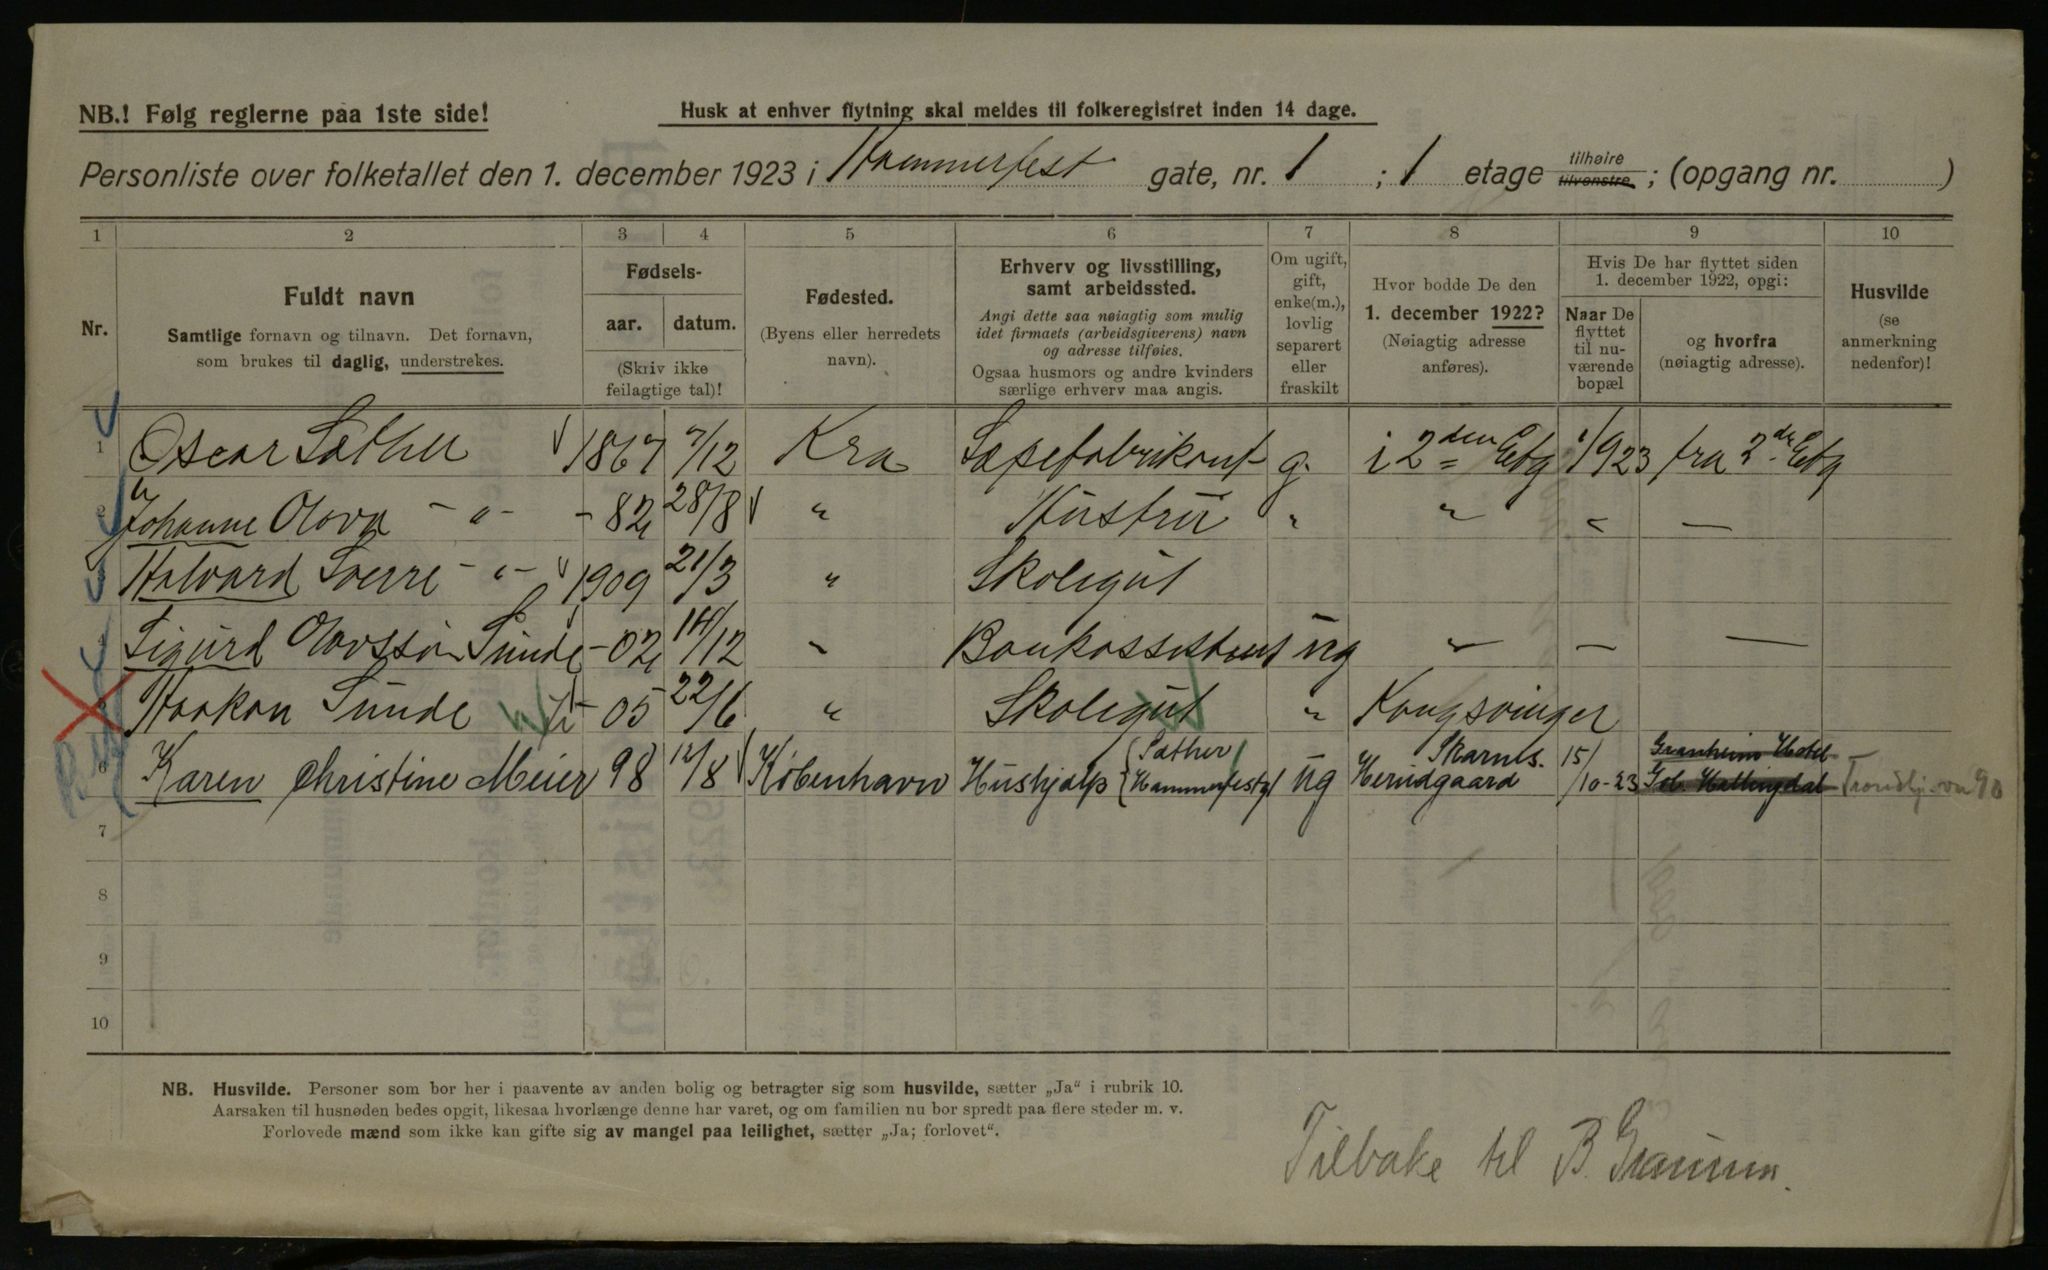 NB.! Følg reglerne paa 1ste side!
Husk at enhver flytning skal meldes til folkeregistret inden 14 dage.
Personliste over folketallet den 1. december 1923 i Hammerfest gate, nr. 1 ; 1 etage tilhøire tilvenstre ; (opgang nr. )
1 2 3 4 5 6 7 8 9 10
Nr.
Fuldt navn
Samtlige fornavn og tilnavn. Det fornavn,
som brukes til daglig, understrekes.
Fødsels-
aar. datum.
(Skriv ikke
feilagtige tal)!
Fødested.
(Byens eller herredets
navn).
Erhverv og livsstilling,
samt arbeidssted.
Angi dette saa nøiagtig som mulig
idet firmaets (arbeidsgiverens) navn
og adresse tilføies.
Ogsaa husmors og andre kvinders
særlige erhverv maa angis.
Om ugift,
gift,
enke(m.),
lovlig
separert
eller
fraskilt
Hvor bodde De den
1. december 1922?
(Nøiagtig adresse
anføres).
Hvis De har flyttet siden
1. december 1922, opgi:
Naar De
flyttet
til nu-
værende
bopæl
og hvorfra
(nøiagtig adresse).
Husvilde
(se
anmerkning
nedenfor)!
1 Oscar Sæther 1867 7/12 Kra Sæpefabrikant g. i 2den Etg 1/923 fra 2de Etg
2 Johanne Olava - " - - 82 28/8 " Hustru " " " —
3 Halvard Sverre - " - 1909 21/3 " Skolegut
4 Sigurd Olavssøn Sunde - 02 14/12 " Bankassistent ug " — —
5 Haakon Sunde - 05 22/6 " Skolegut " Kongsvinger
6 Karen Christine Meier 98 12/8 København Hushjælp { Sæther Hammerfestg ug Skarnes. Herudgaard 15/10-23 Granheim Hotel Gol. Hallingdal
7
8
9
10
NB. Husvilde. Personer som bor her i paavente av anden bolig og betragter sig som husvilde, sætter „Ja“ i rubrik 10.
Aarsaken til husnøden bedes opgit, likesaa hvorlænge denne har varet, og om familien nu bor spredt paa flere steder m. v.
Forlovede mænd som ikke kan gifte sig av mangel paa leilighet, sætter „Ja; forlovet“.
Tilbake til B.